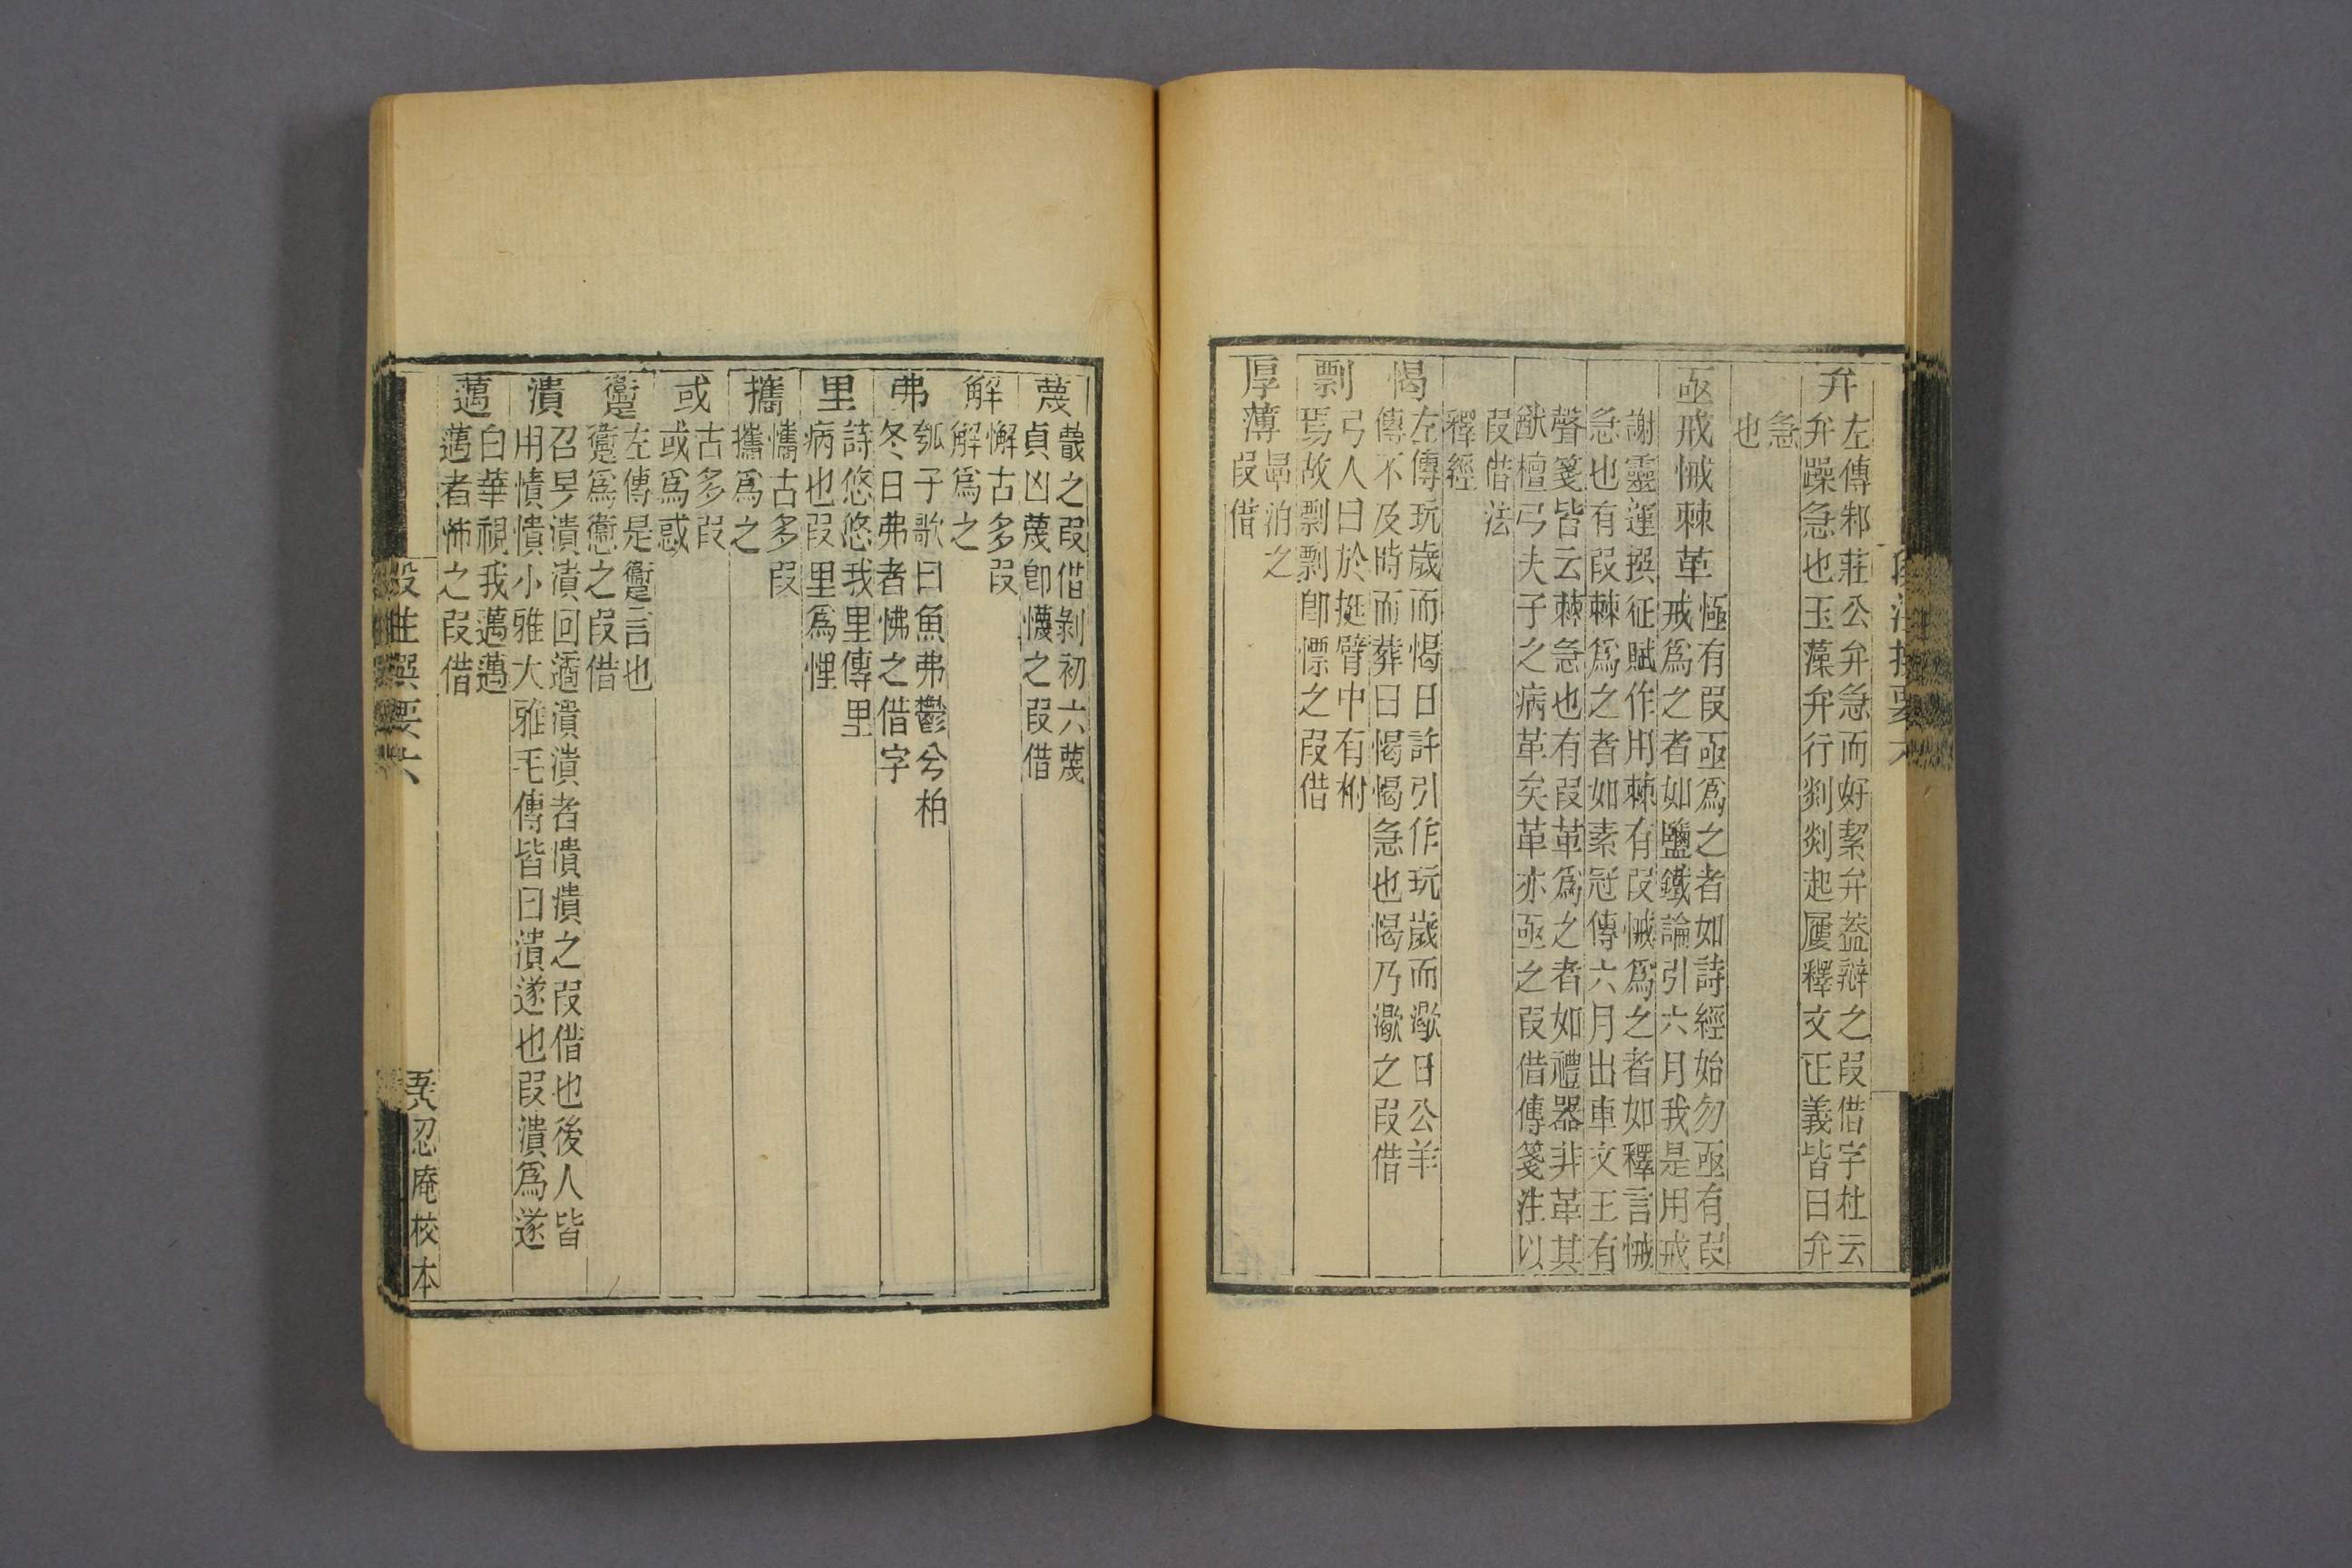 弁
左傳邾莊公弁急而好絜弁葢辯之叚借字杜云
弁躁急也玉藻弁行剡剡起屨釋文正義皆曰弁
急
也
亟戒悈棘革
恆有叚亟爲之者如詩經始勿亟有叚
戒爲之者如鹽鐵論引六月我是用戒
謝靈運撰征賦作用棘有叚悈爲之者如釋言悈
急也有叚棘爲之者如素冠傳六月出車文王有
聲箋皆云棘急也有叚革爲之者如禮器非革其
猷檀弓夫子之病革矣革亦亟之叚借傳箋注以
叚借法
釋經
愒
左傳玩歲而愒日許引作玩歲而㵣日公羊
傳不及時而葬曰愒愒急也愒乃㵣之叚借
剽
弓人曰於挺臂中有柎
焉故剽剽卽慓之叚借
厚薄
㫗洎之
叚借
蔑
懱之叚借剝初六蔑
貞凶蔑卽懱之叚借
解
懈古多叚
解爲之
弗
瓠子歌曰魚弗鬱兮柏
冬日弗者怫之借字
里
詩悠悠我里傳里
病也叚里爲悝
攜
懏古多叚
攜爲之
或
古多叚
或爲惑
躗
左傳是躗言也
躗爲䜜之叚借
潰
召旻潰潰回遹潰潰者憒憒之叚借也後人皆
用憒憒小雅大雅毛傳皆曰潰遂也叚潰爲遂
邁
白華視我邁邁
邁者怖之叚借
段注撰要六
吾忍庵校本